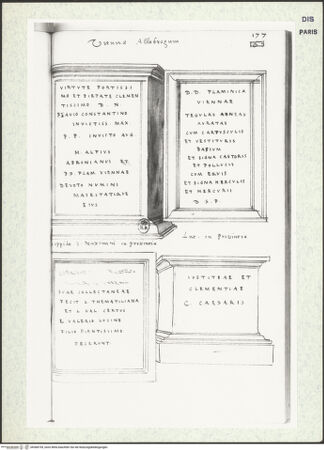 DIS
PARIS
177
Vienna Allobrogum
VIRTVTE FORTISSI
MO ET PIETATE CLEMEN
TISSIMO D. N
FLAVIO CONSTANTINO
INVICTISS MAX
P. P. INVICTO AVG
M. ALFIVS
APRONIANVS ET.
PP FLAM VIENNAE
DEVOTO NVMINI
MAIESTATIQVE
EIVS
D. D. FLAMINICA
VIENNAE
TEGVLAS AENEAS
AVRATAS
CVM CARPVSCVLIS
ET VESTITVRIS
BASIVM
ET SIGNA CASTORIS
ET POLLVCIS
CVM EQVIS
ET SIGNA HERCVLIS
ET MERCVRI
D S P
in proscenio
in proscenio
SVAE COLLECTANEAE
FECIT L THEMATILIANA
ET L VAL CERTVS
E VALERIO
FILIO PIENTISSIMO
FECERVNT
IVSTITIAE ET
CLEMENTIAE
C. CAESARIS